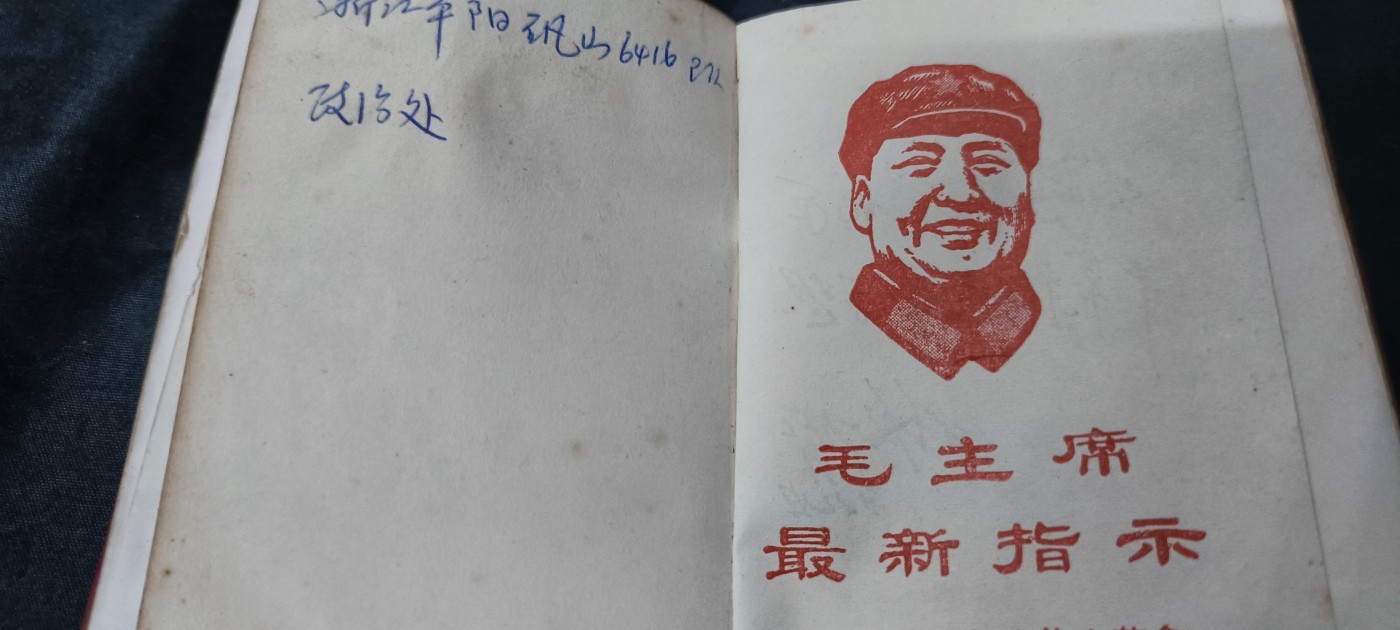 浙江平阳矾山6416部队
政治处
毛主席
最新指示